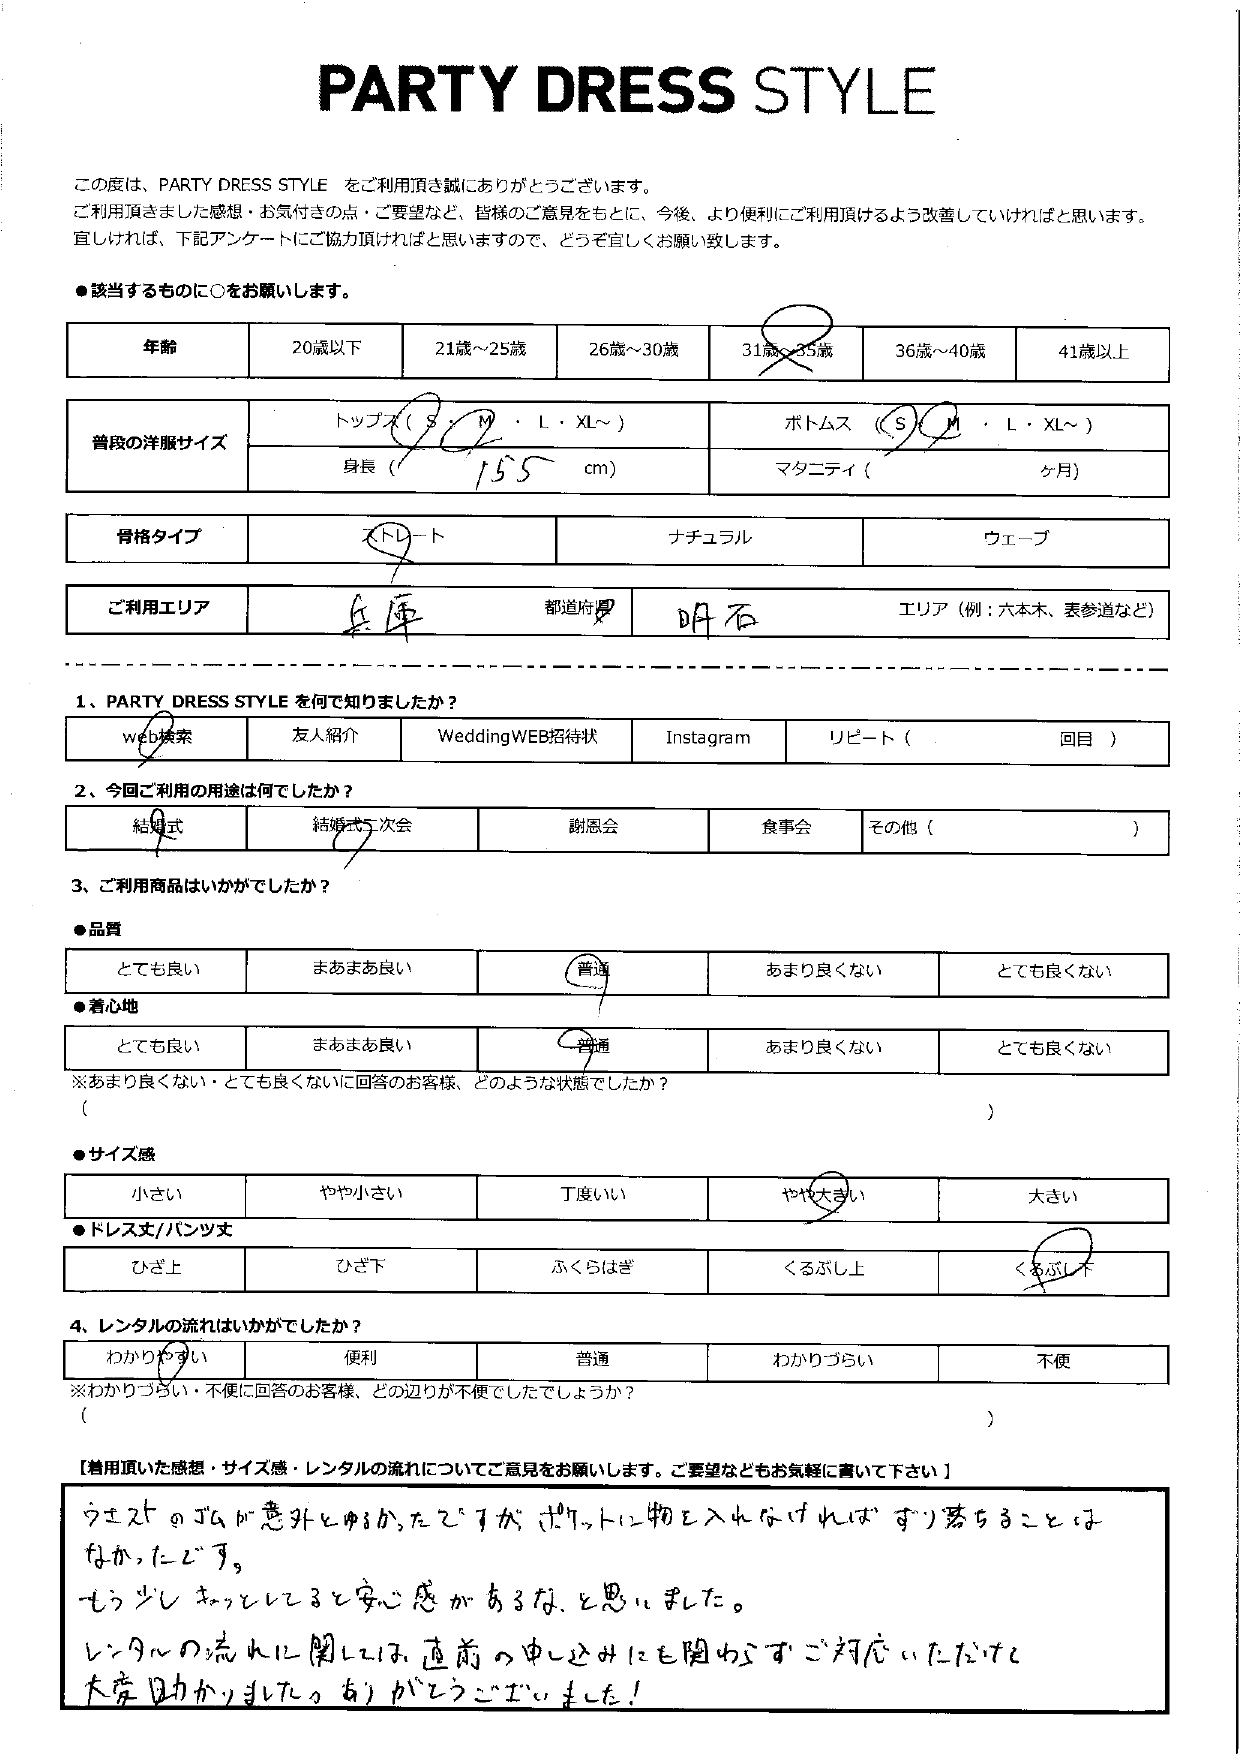 PARTY DRESS STYLE
この度は、PARTY DRESS STYLE をご利用頂き誠にありがとうございます。
ご利用頂きました感想・お気付きの点・ご要望など、皆様のご意見をもとに、今後、より便利にご利用頂けるよう改善していければと思います。
宜しければ、下記アンケートにご協力頂ければと思いますので、どうぞ宜しくお願い致します。
●該当するものに○をお願いします。
年齢 20歳以下 21歳～25歳 26歳～30歳 31歳～35歳 36歳～40歳 41歳以上
普段の洋服サイズ トップス( S ・ M ・ L ・ XL～ ) ボトムス ( S ・ M ・ L ・ XL～ )
身長 ( 155 cm) マタニティ ( ヶ月)
骨格タイプ ストレート ナチュラル ウェーブ
ご利用エリア 兵庫 都道府県 明石 エリア（例：六本木、表参道など）
1、PARTY DRESS STYLE を何で知りましたか？
web検索 友人紹介 WeddingWEB招待状 Instagram リピート ( 回目 )
2、今回ご利用の用途は何でしたか？
結婚式 結婚式二次会 謝恩会 食事会 その他 ( )
3、ご利用商品はいかがでしたか？
●品質
とても良い まあまあ良い 普通 あまり良くない とても良くない
●着心地
とても良い まあまあ良い 普通 あまり良くない とても良くない
※あまり良くない・とても良くないに回答のお客様、どのような状態でしたか？
( )
●サイズ感
小さい やや小さい 丁度いい やや大きい 大きい
●ドレス丈/パンツ丈
ひざ上 ひざ下 ふくらはぎ くるぶし上 くるぶし下
4、レンタルの流れはいかがでしたか？
わかりやすい 便利 普通 わかりづらい 不便
※わかりづらい・不便に回答のお客様、どの辺りが不便でしたでしょうか？
( )
【着用頂いた感想・サイズ感・レンタルの流れについてご意見をお願いします。ご要望などもお気軽に書いて下さい】
ウエストのゴムが意外とゆるかったですが、ポケットに物を入れなければずり落ちることは
なかったです。
もう少しキュッとしてると安心感があるな、と思いました。
レンタルの流れに関しては、直前の申し込みにも関わらずご対応いただけて
大変助かりました。ありがとうございました！